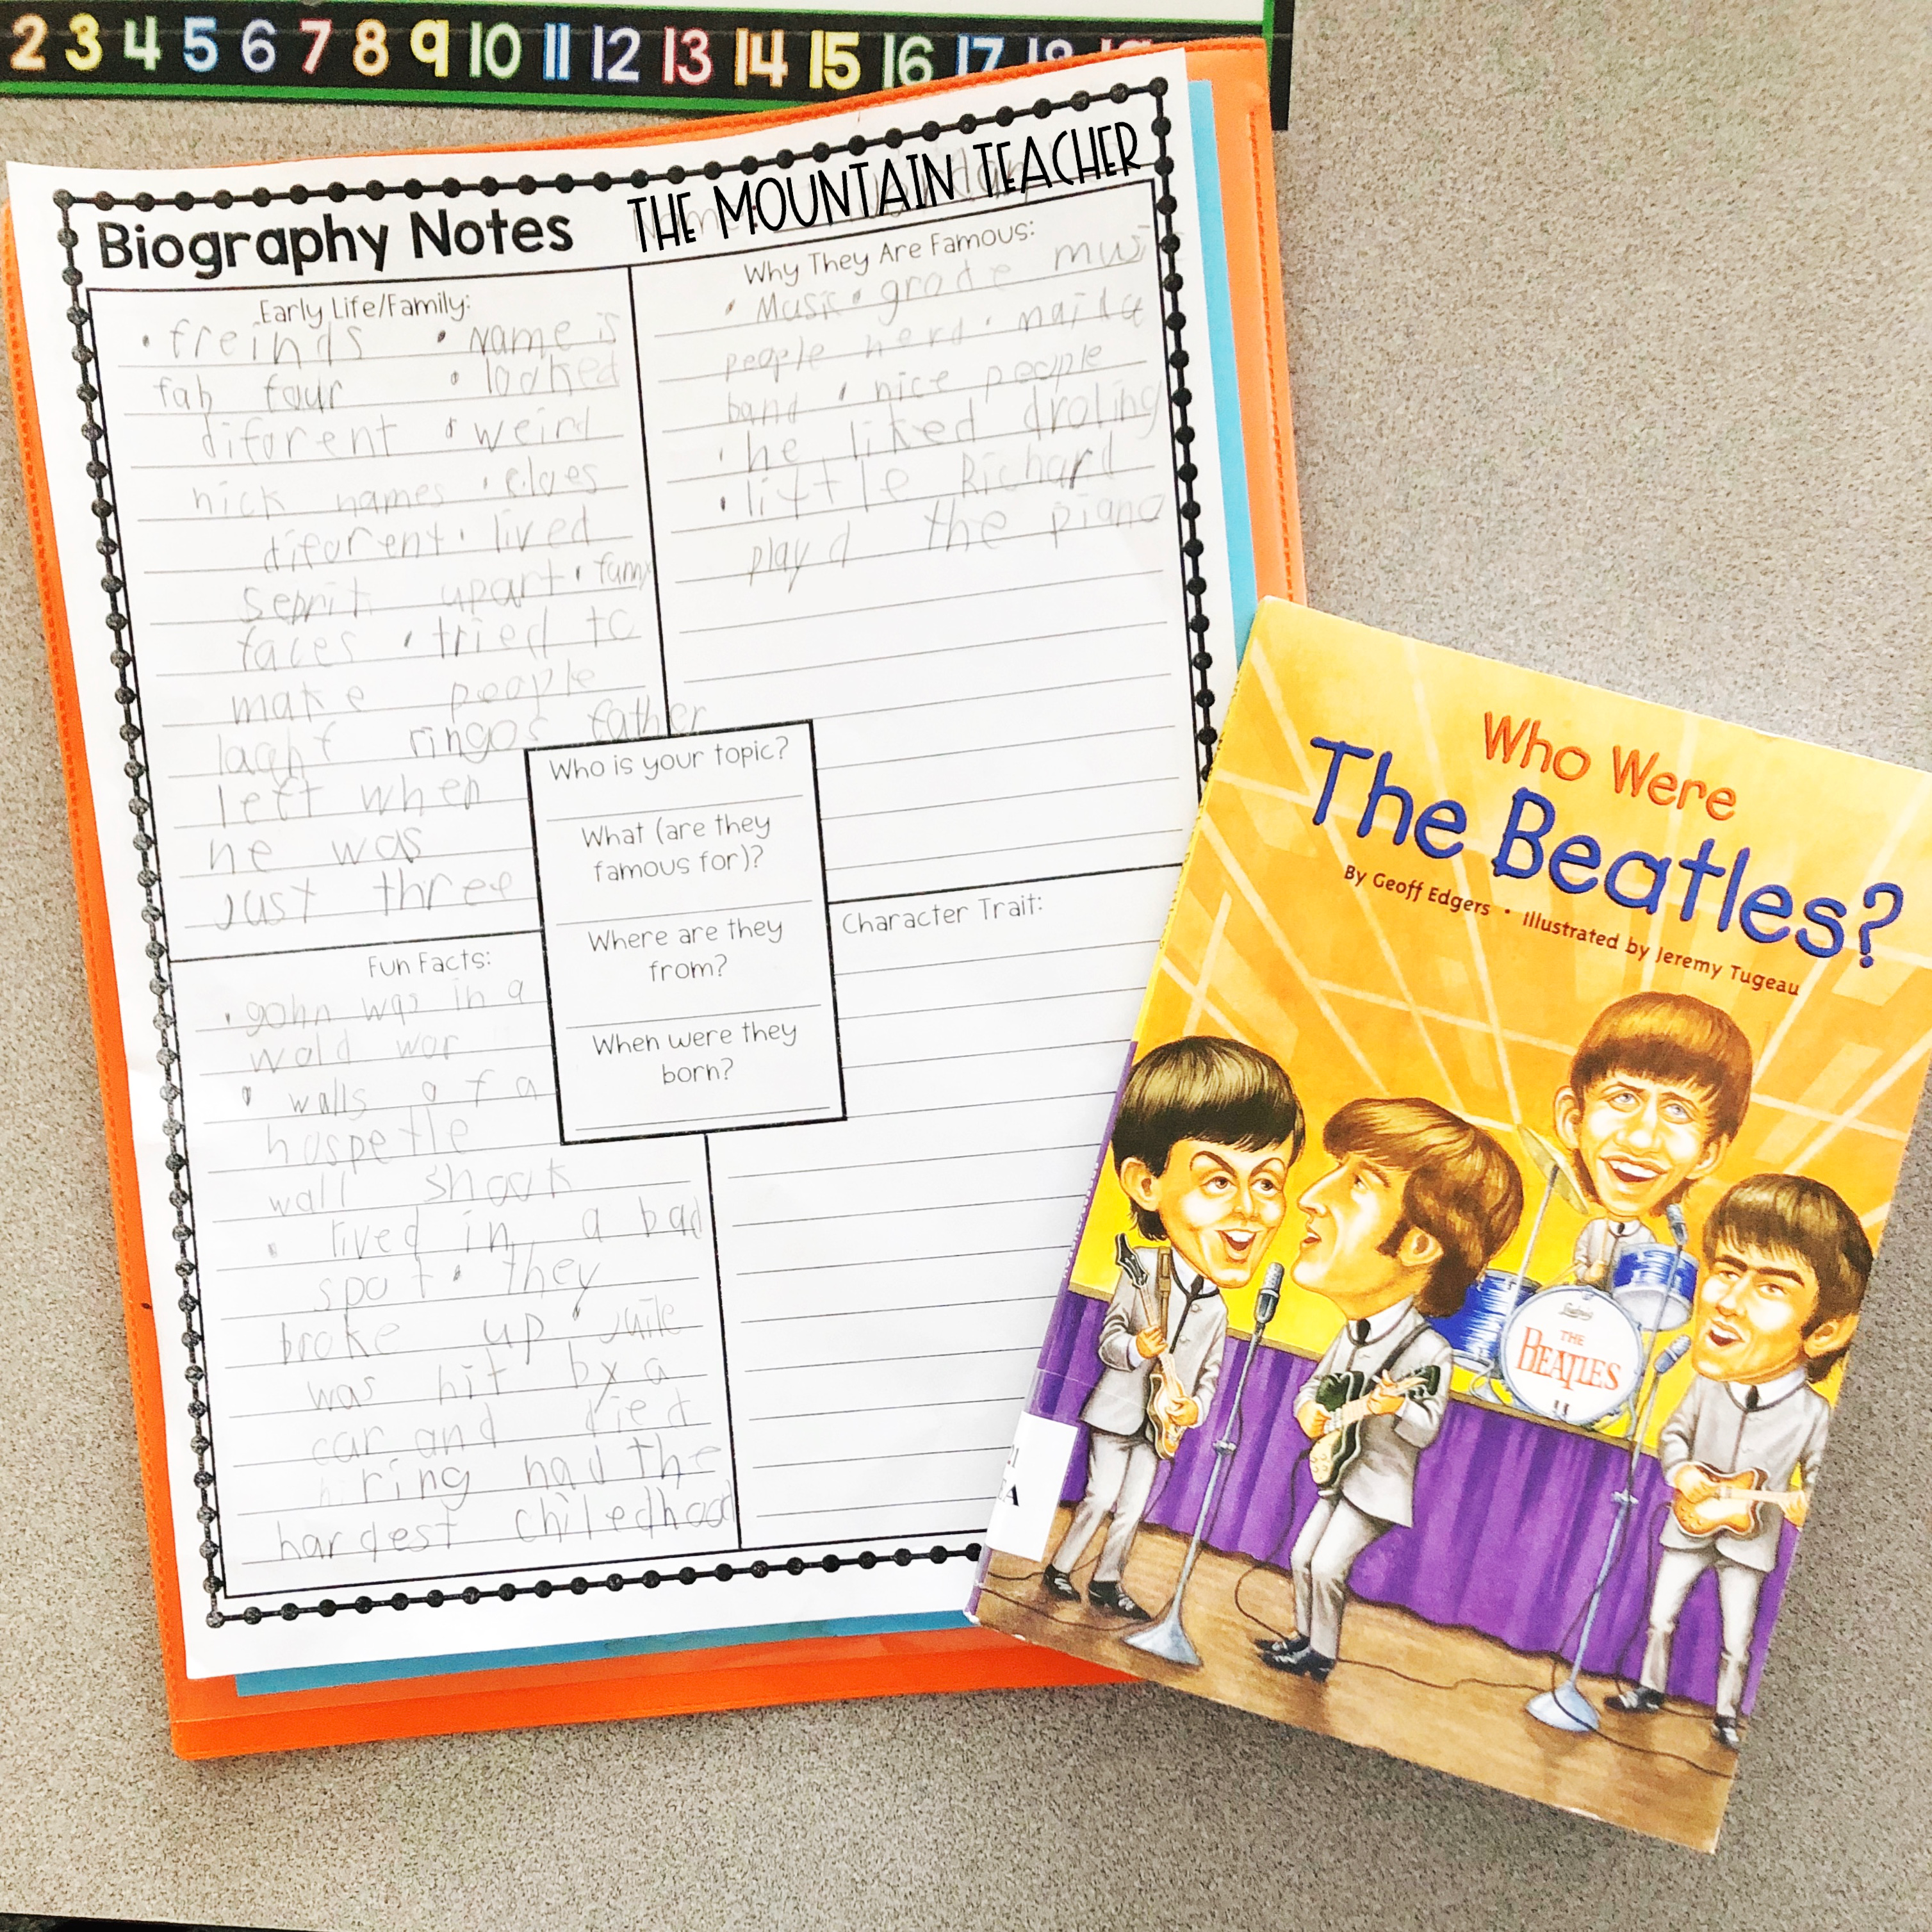 2 3 4 5 6 7 8 9 10 11 12 13 14 15 16 17 18
Biography Notes
THE MOUNTAIN TEACHER
Early Life/Family:
• freinds • Name is
fab four • looked
diforent • weird
nick names • cloes
diforent • lived
seprit upart •
faces • tried to
make people
laght ringos father
left when
he was
Just three
Why They Are Famous:
• Music • grade
people herd •
band • nice people
• he liked droling
• little Richard
playd the piano
Who is your topic?
What (are they
famous for)?
Where are they
from?
When were they
born?
Fun Facts:
• gohn was in a
wold war
• walls of a
hospetle
wall shook
• lived in a bad
spot • they
broke up •
was hit by a
car and died
ring had the
hardest chiledhood
Character Trait:
Who Were
The Beatles?
By Geoff Edgers • Illustrated by Jeremy Tugeau
THE
BEATLES